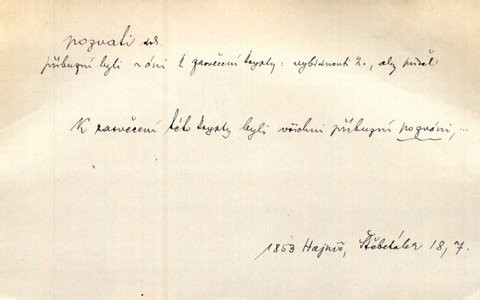 pozvati dok.
příbuzní byli zváni k zasvěcení krypty: vybídnouti k., aby přišel
K zasvěcení této krypty byli všichni příbuzní pozváni, ...
1853 Hajniš, Štěbetálek 18, 7.